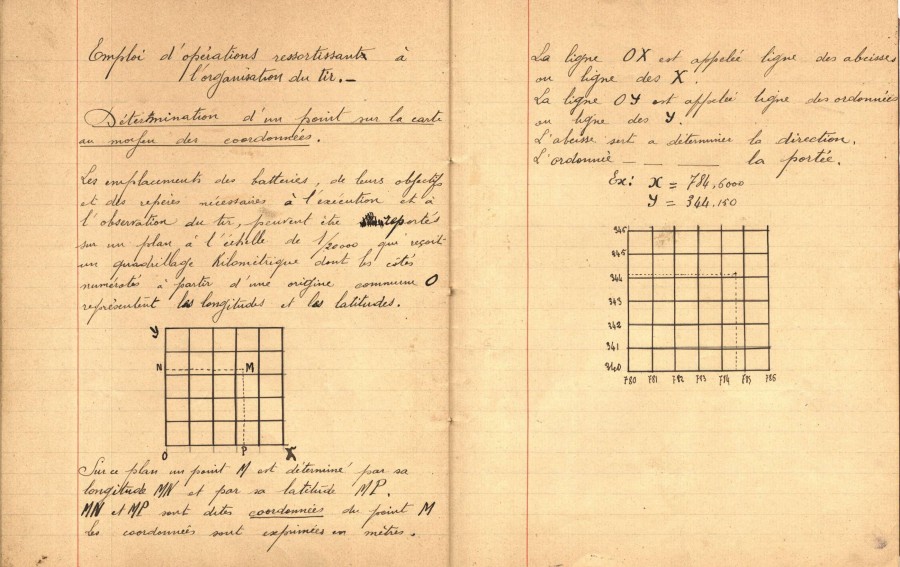 Emploi d'opérations ressortissant à
l'organisation du tir.-
Détermination d'un point sur la carte
au moyen des coordonnées.
Les emplacements des batteries, de leurs objectifs
et des repères nécessaires à l'exécution et à
l'observation du tir, peuvent être reportés
sur un plan à l'échelle de 1/20000 qui reçoit
un quadrillage Kilométrique dont les côtés
numérotés à partir d'une origine commune O
représentent les longitudes et les latitudes.
Y
N M
O P X
Sur ce plan un point M est déterminé par sa
longitude MN et par sa latitude MP.
MN et MP sont dites coordonnées du point M
les coordonnées sont exprimées en mètres.
La ligne OX est appelée ligne des abcisses
ou ligne des X.
La ligne OY est appelée ligne des ordonnées
ou ligne des Y.
L'abcisse sert a déterminer la direction.
L'ordonnée — — — la portée.
Ex: X = 784,6000
Y = 344,150
346
345
344
343
342
341
340
780 781 782 783 784 785 786